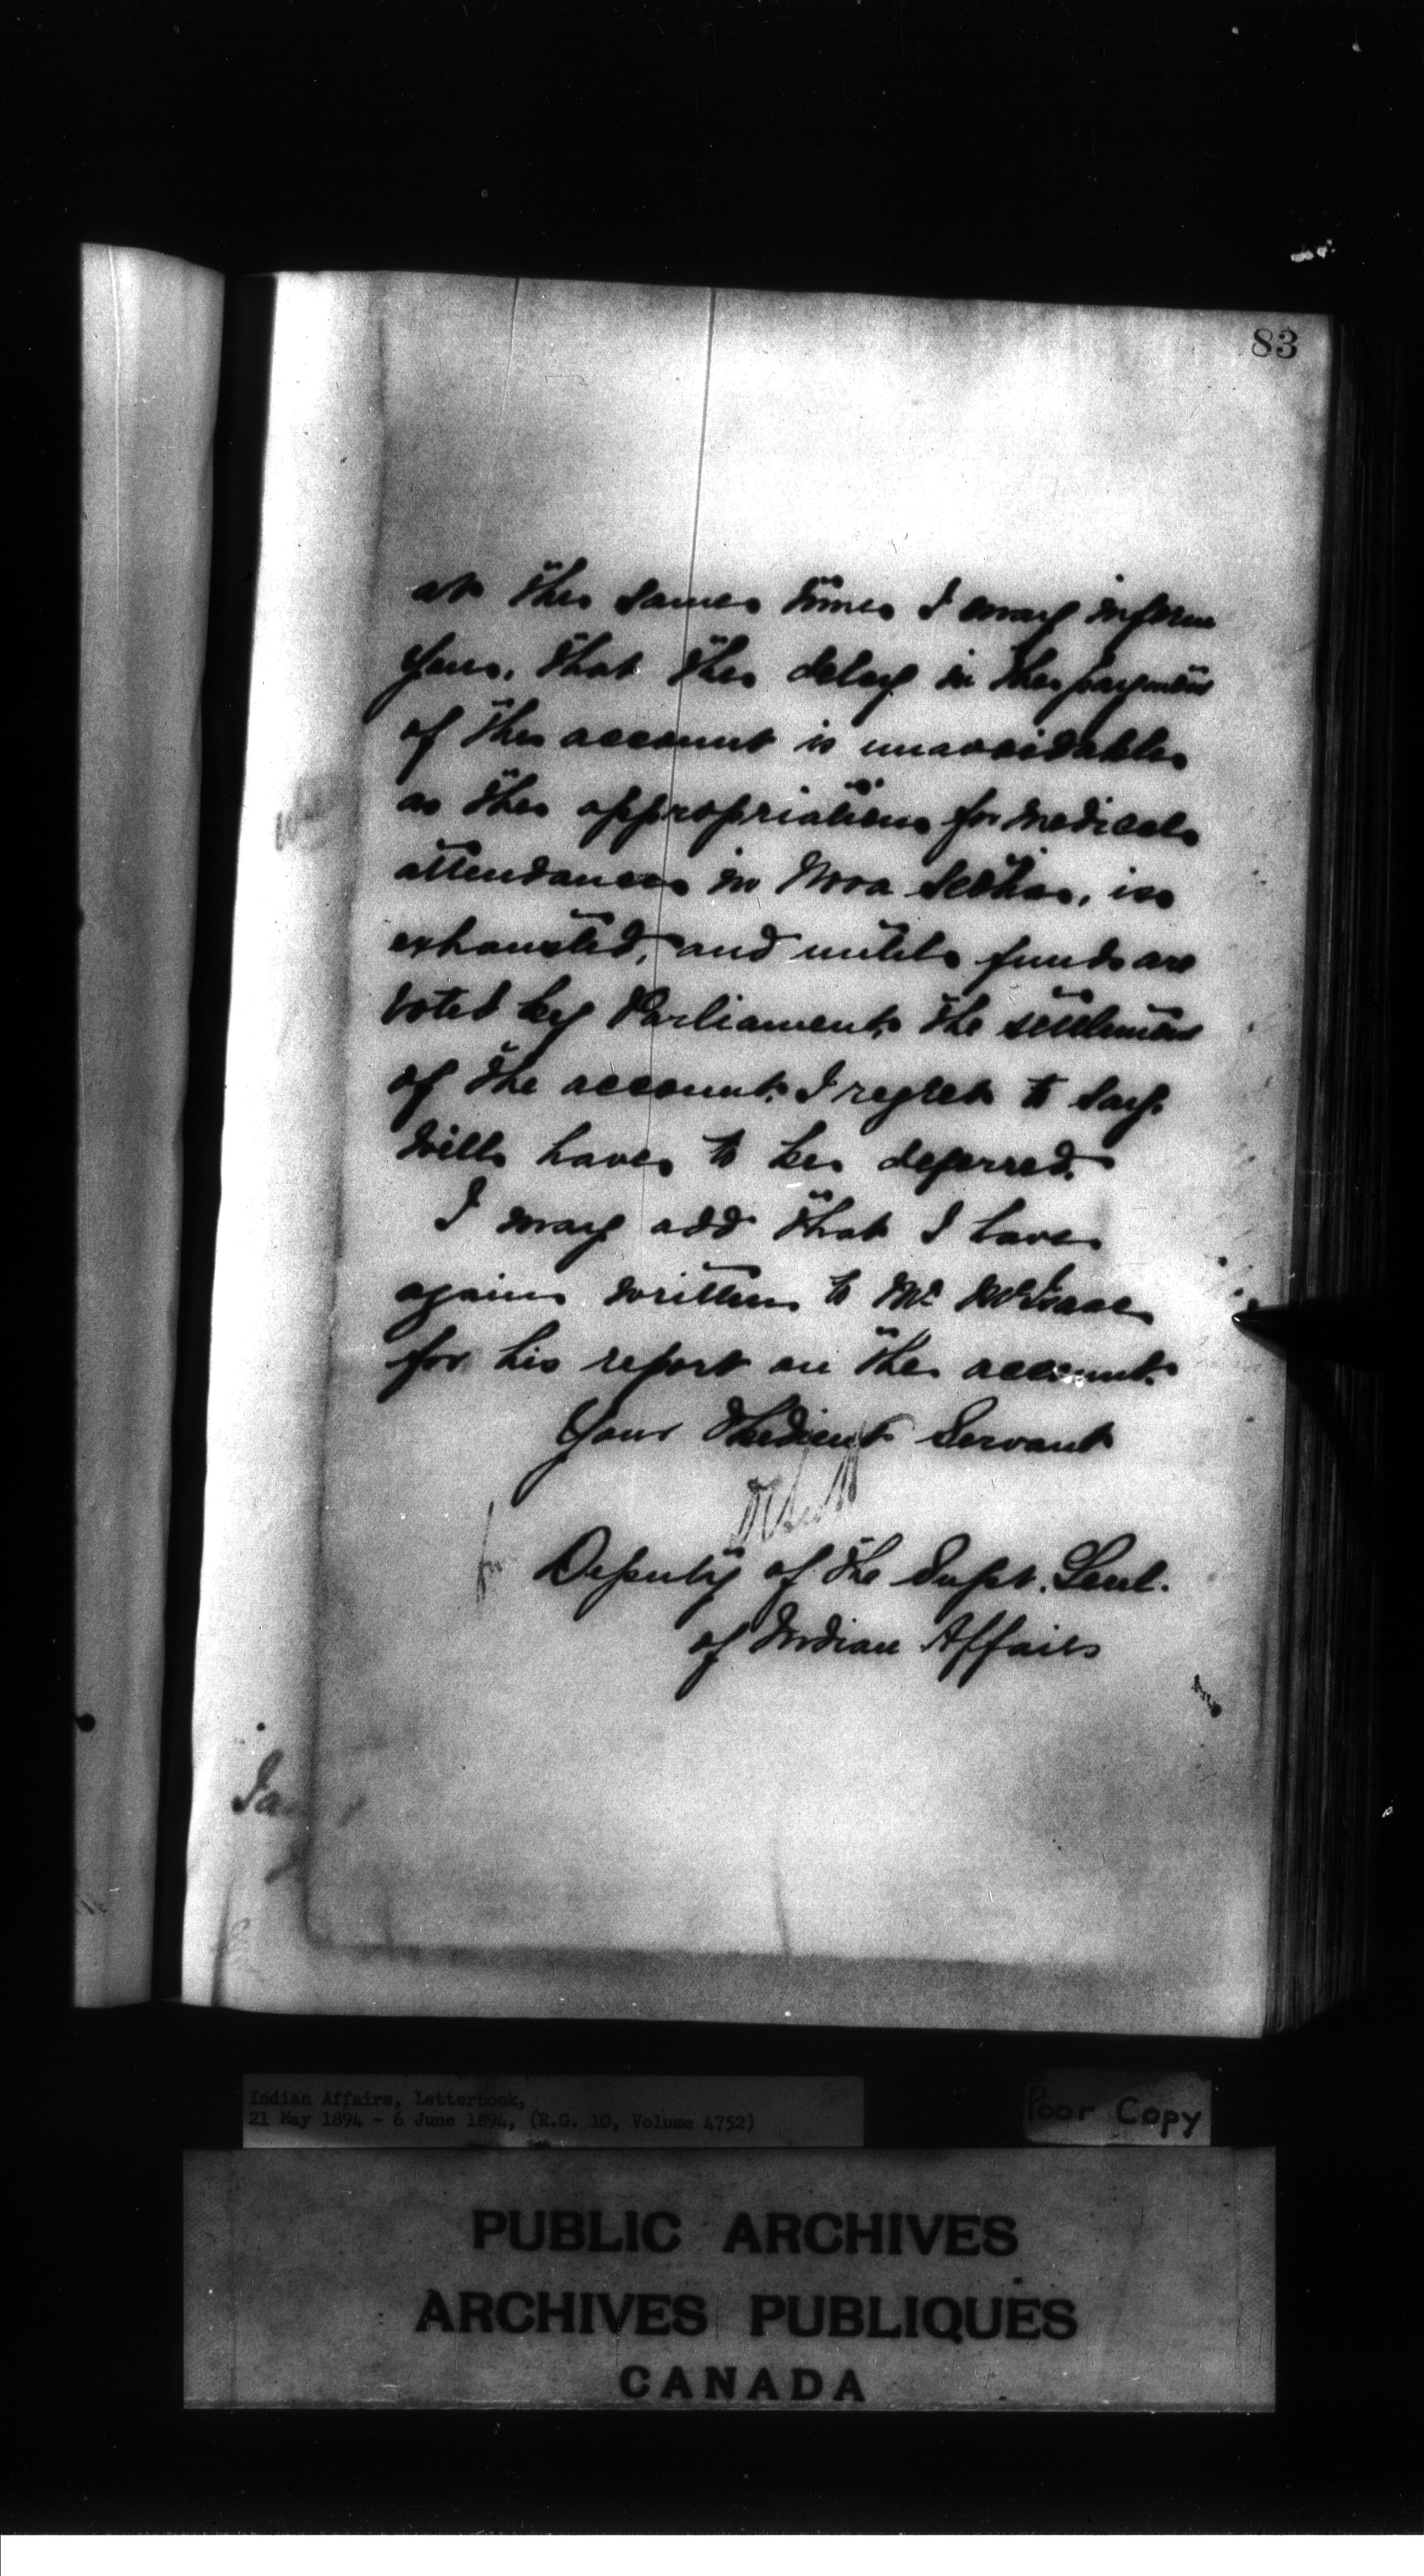 83
at the same time I may inform
you, that the delay in the payment
of the account is unavoidable
as the appropriation for medical
attendance in Nova Scotia, is
exhausted, and until funds are
voted by Parliament, the settlement
of the account, I regret to say,
will have to be deferred.
I may add that I have
again written to Mr McIsaac
for his report on the account.
Your Obedient Servant
for
Deputy of the Supt. Genl.
of Indian Affairs
Indian Affairs, Letterbook,
21 May 1894 - 6 June 1894, (R.G. 10, Volume 4752)
Poor Copy
PUBLIC ARCHIVES
ARCHIVES PUBLIQUES
CANADA